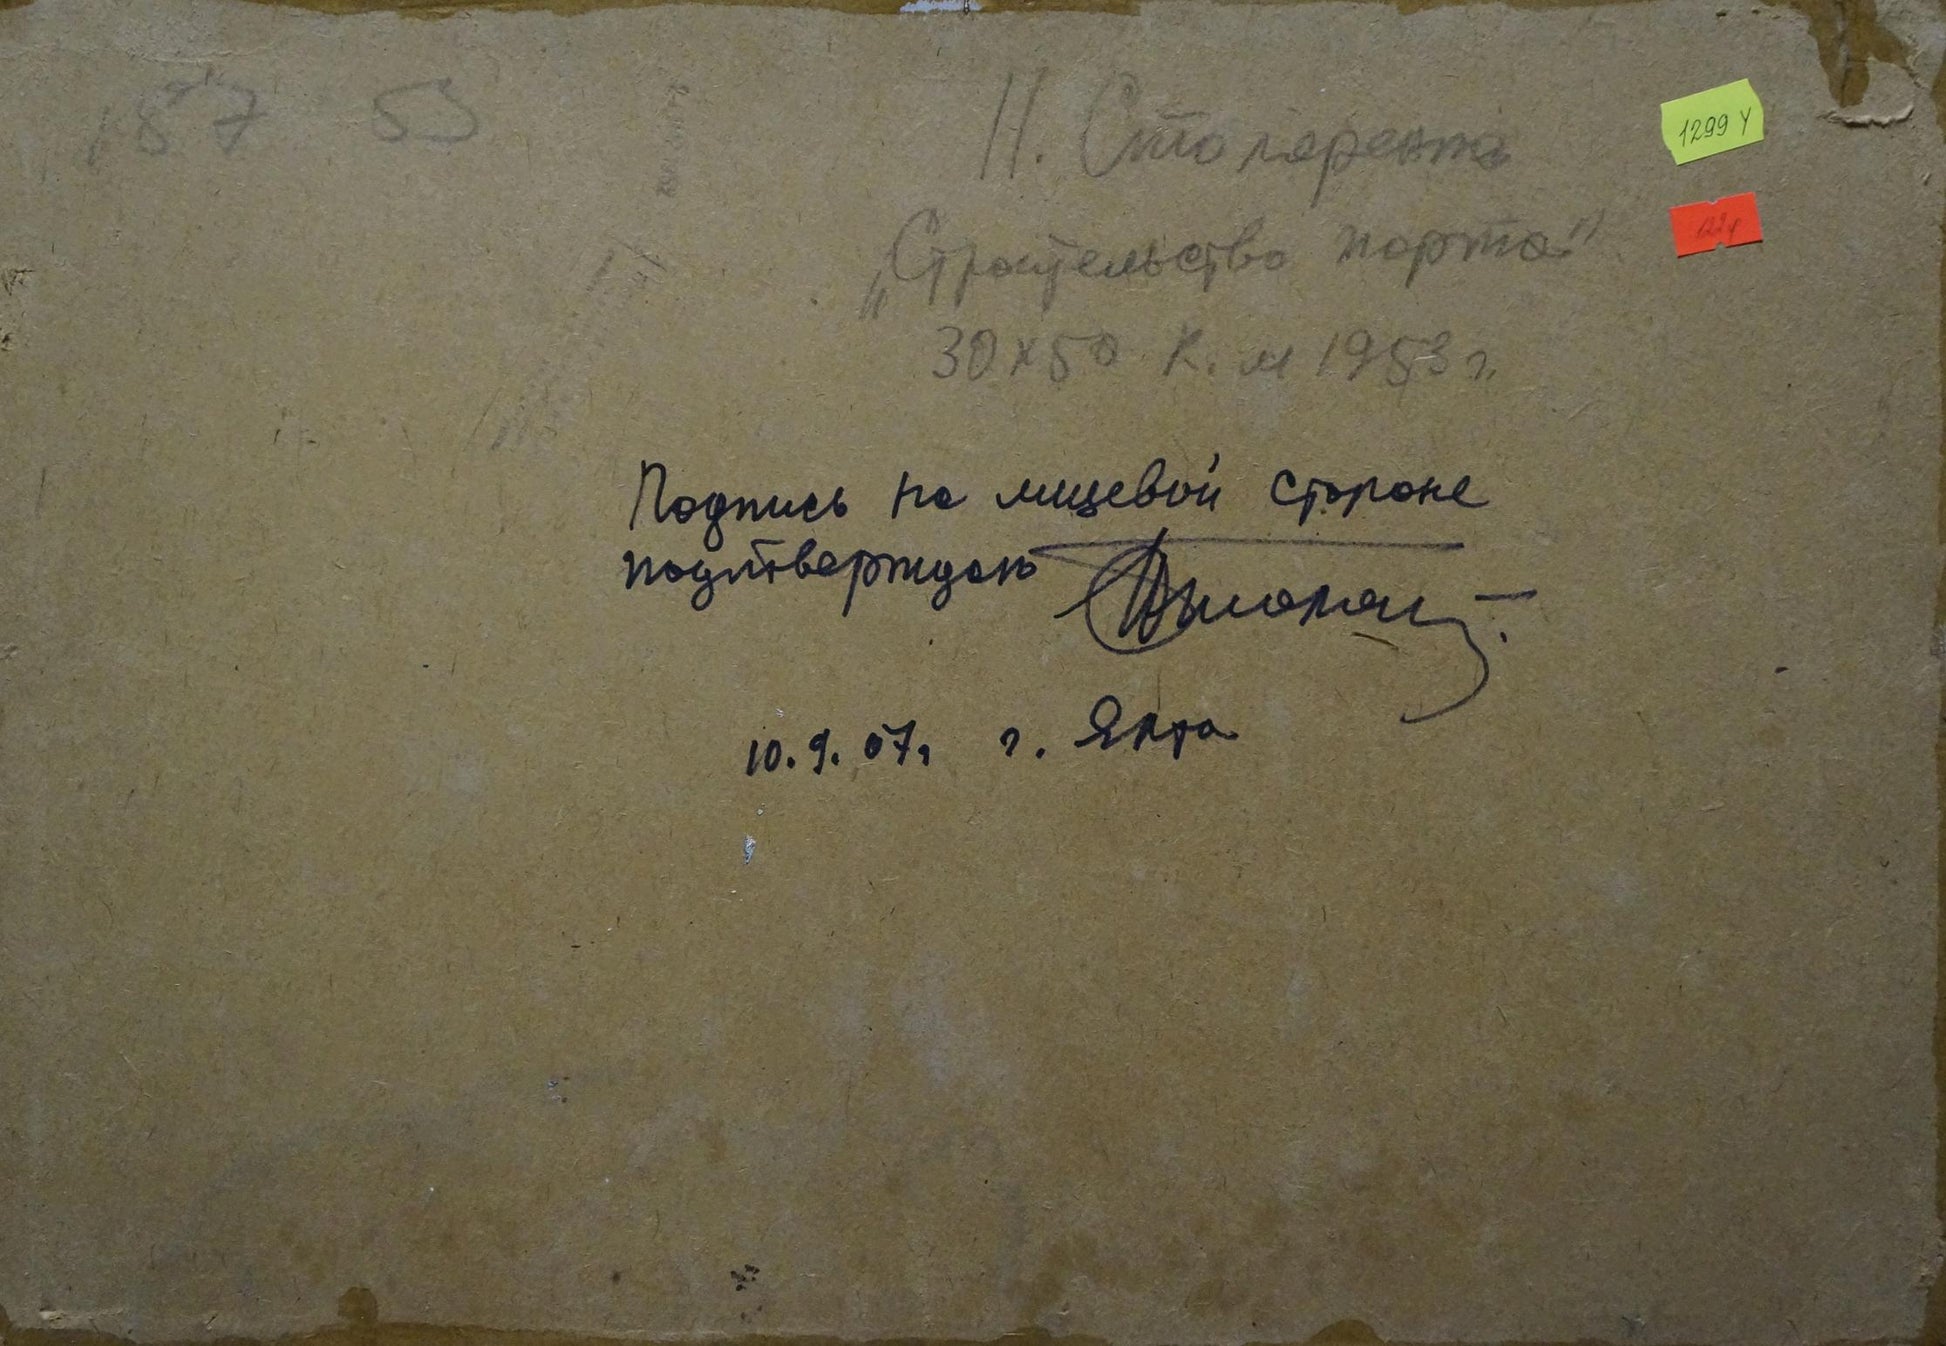 187 53
Н. Столяренко
„Строительство порта"
30х50 к. м 1953 г.
1299 Y
Подпись на лицевой стороне
подтверждаю
10.9.07, г. Ялта